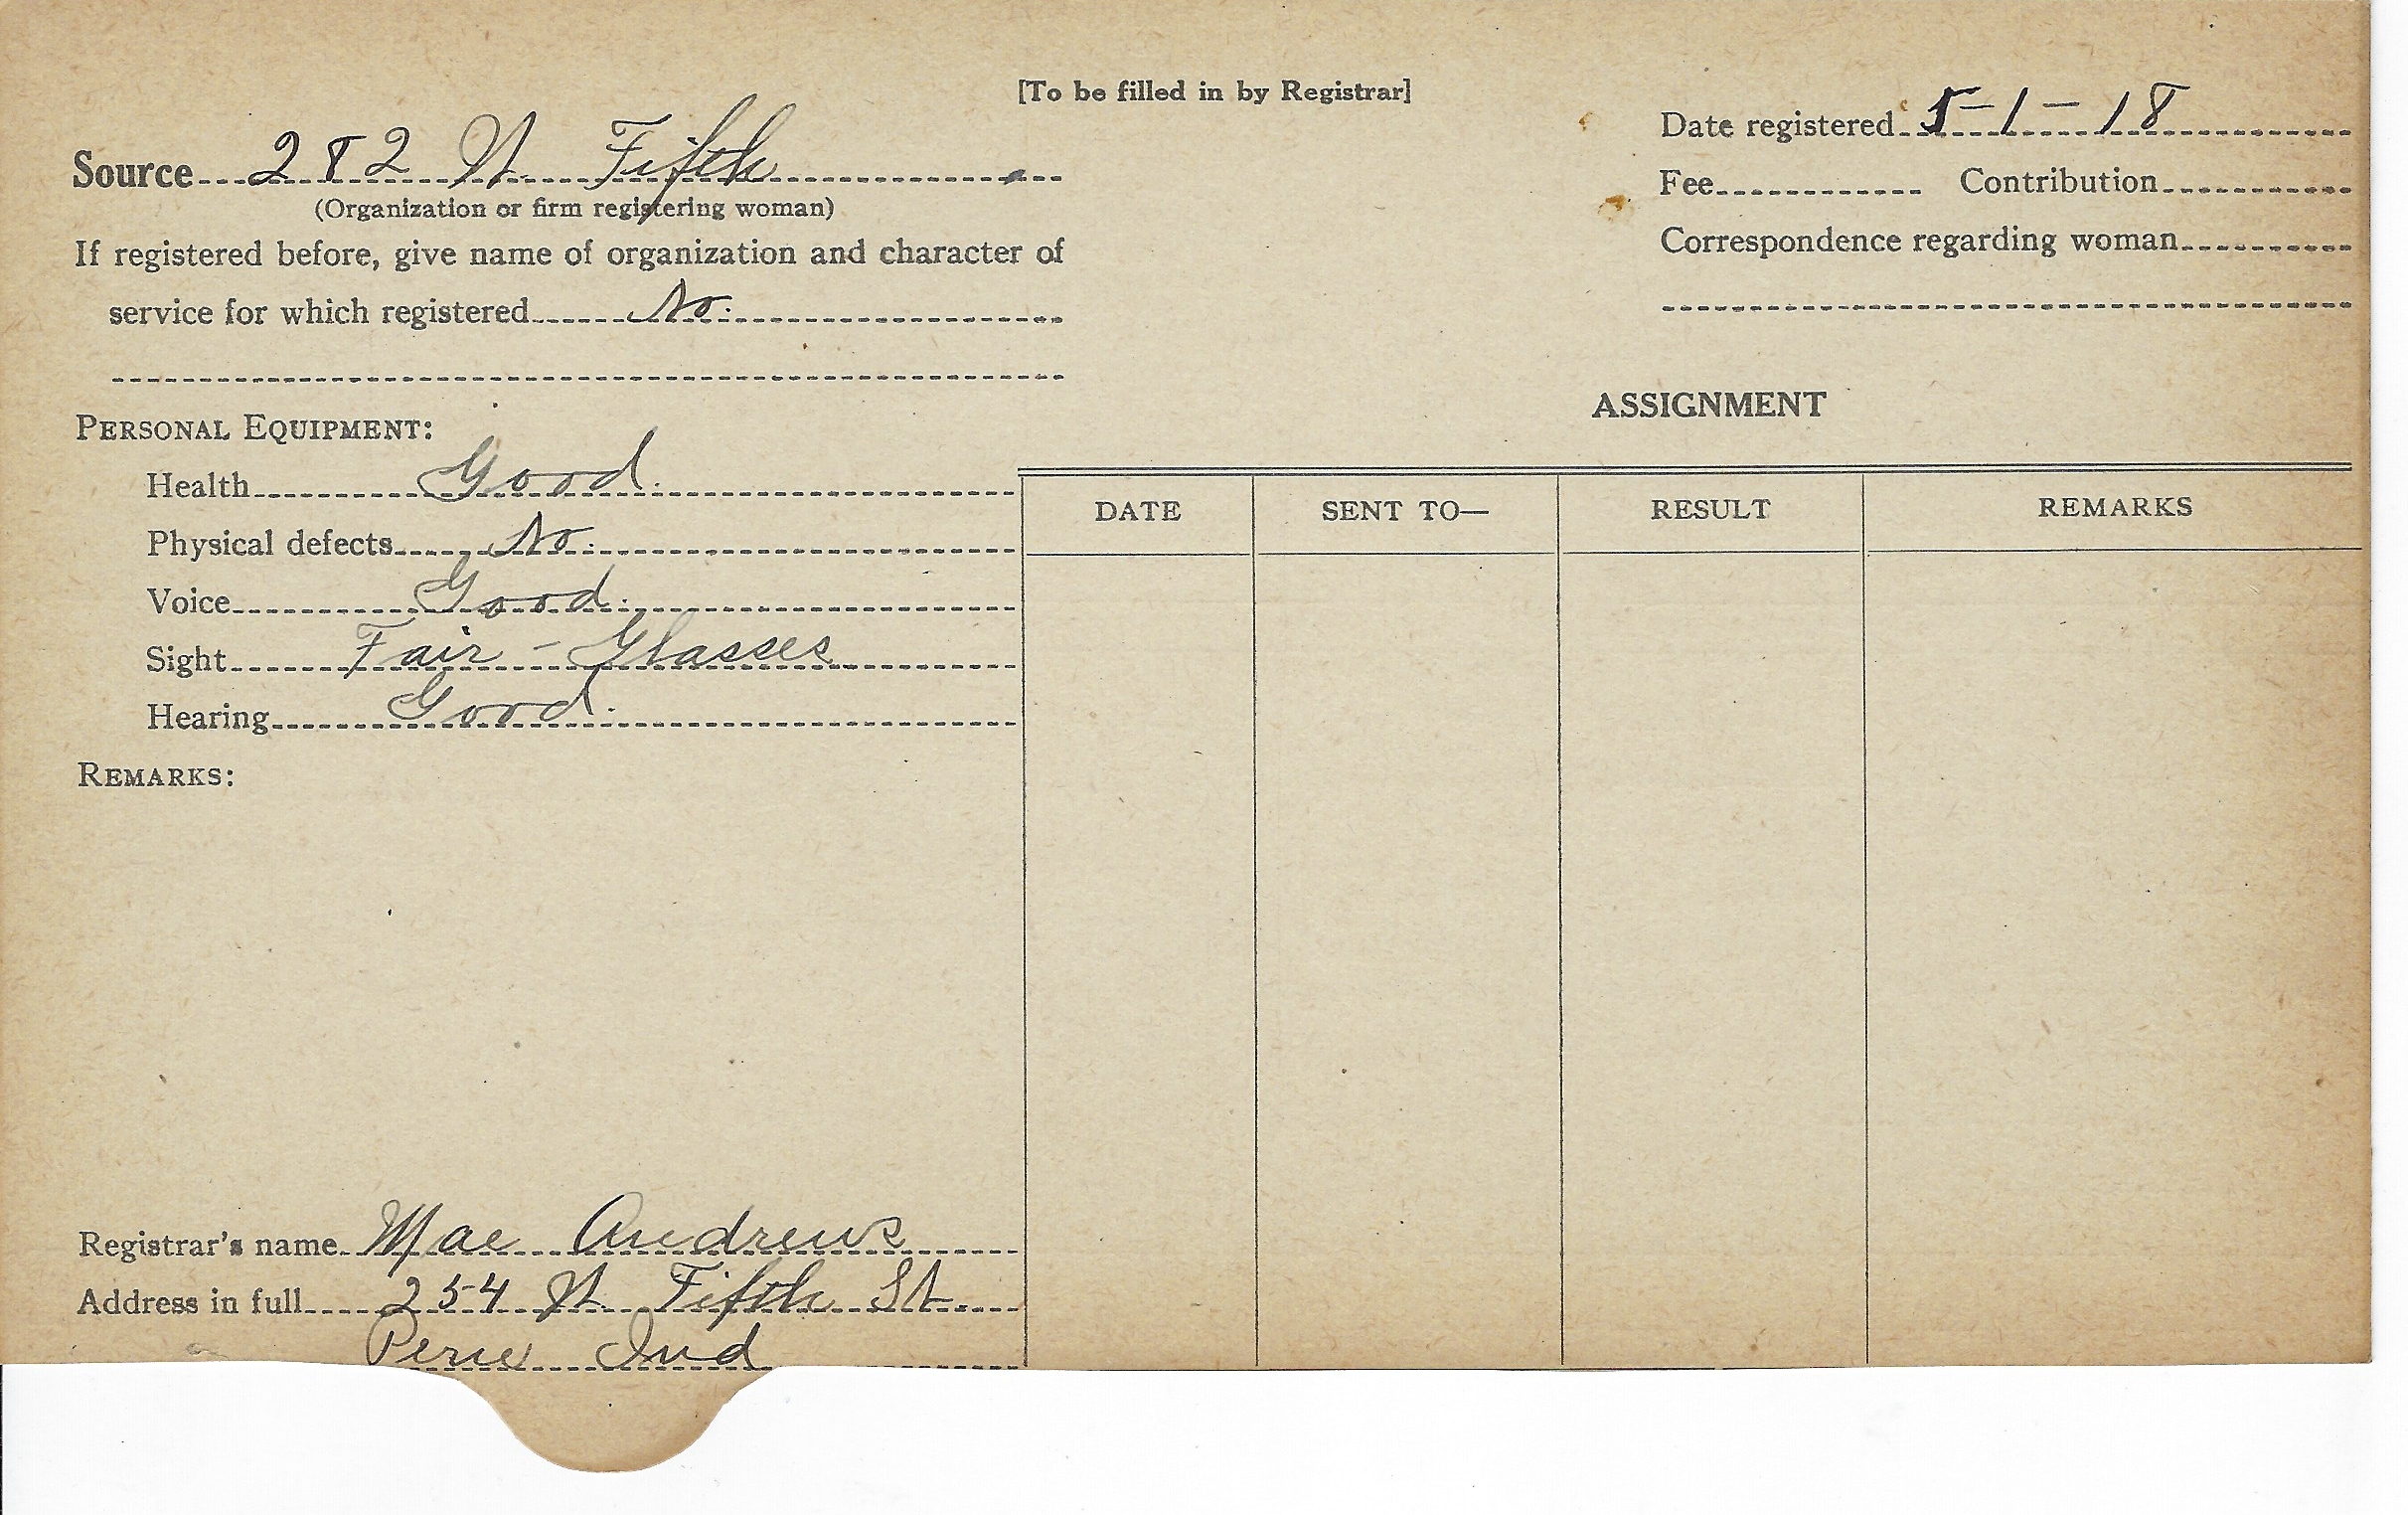 [To be filled in by Registrar]
Source 282 W. Fifth
(Organization or firm registering woman)
If registered before, give name of organization and character of
service for which registered No.
Date registered 5-1-18
Fee Contribution
Correspondence regarding woman
PERSONAL EQUIPMENT:
Health Good.
Physical defects No.
Voice Good.
Sight Fair - Glasses
Hearing Good.
REMARKS:
ASSIGNMENT
DATE SENT TO— RESULT REMARKS
Registrar's name Mae Andrews
Address in full 254 W. Fifth St.
Peru Ind